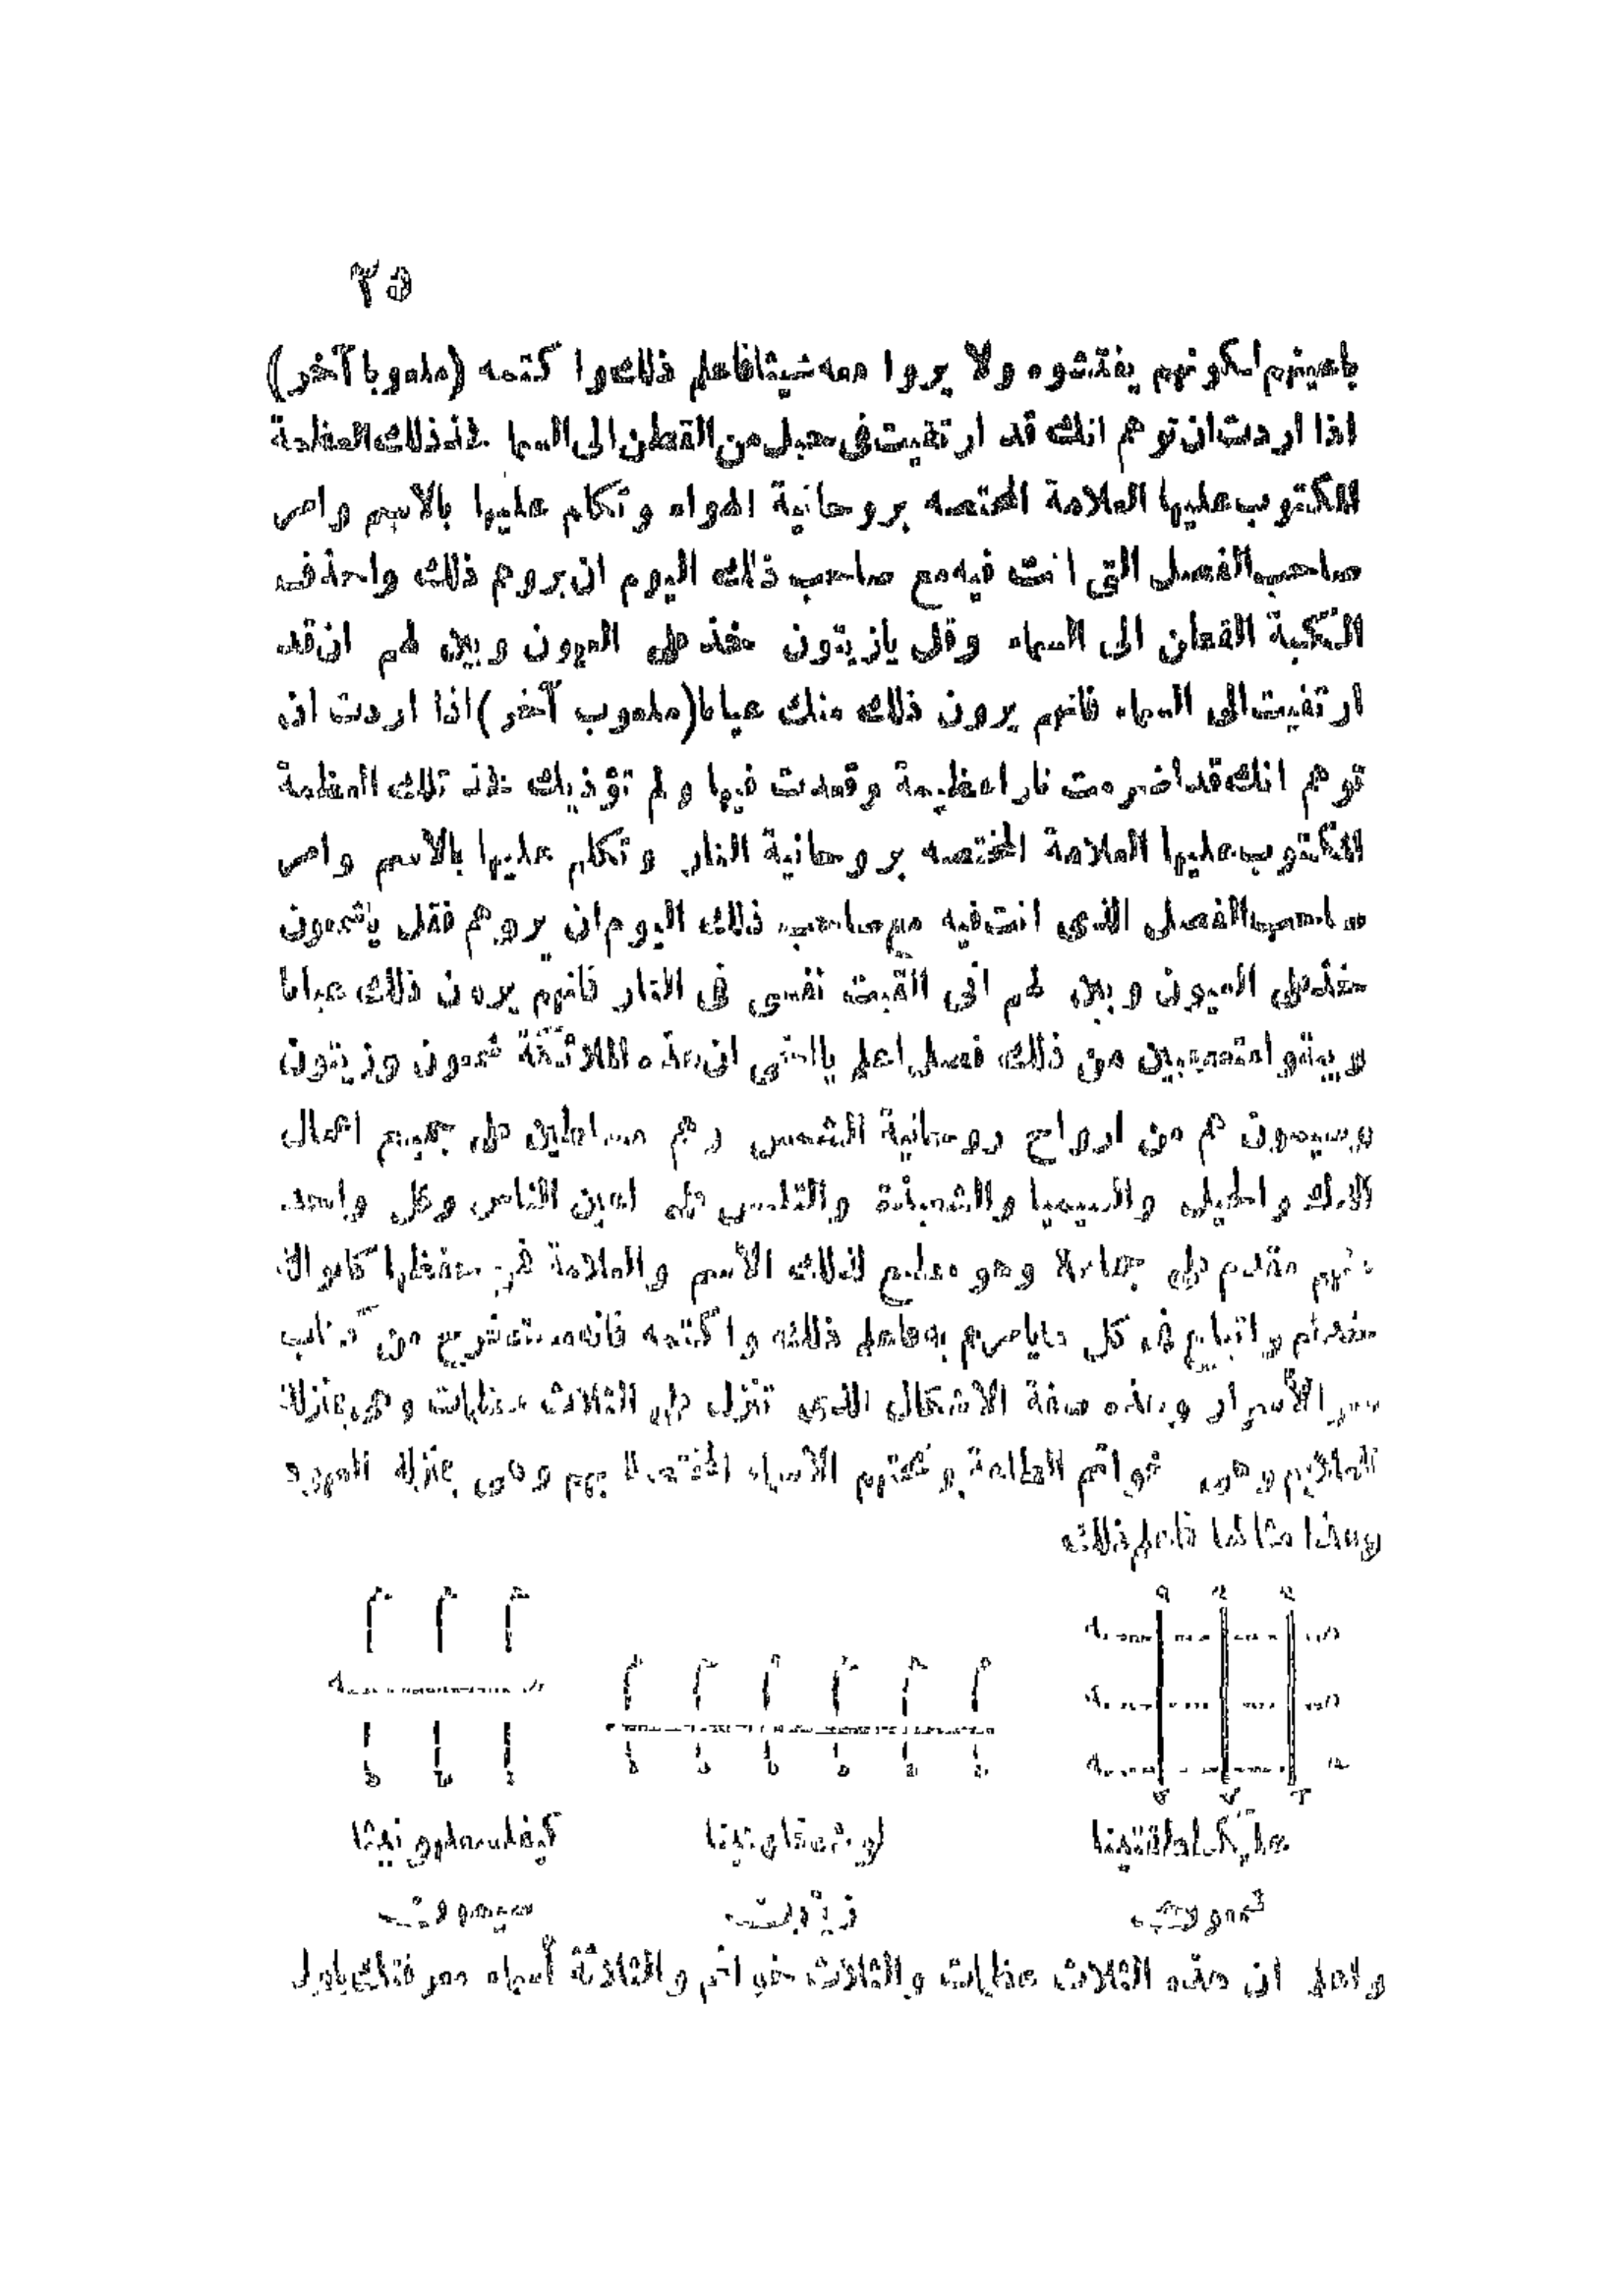 ٣٥
باعينهم لكونهم يفتشوه ولا يروا معه شيئا فاعلم ذلك وا كتمه (ملعوبا آخر)
اذا اردت ان توهم انك قد ارتقيت فى حبل من القطن الى السما خذ ذلك العظمة
المكتوب عليها العلامة المختصه بروحانية الهواء وتكلم عليها بالاسم وامر
صاحب الفصل التى انت فيه مع صاحب ذلك اليوم ان يروهم ذلك واحذف
الكبة القطن الى السماء وقل يازيتون خذ على العيون وبين لهم ان قد
ارتقيت الى السماء فانهم يرون ذلك منك عيانا (ملعوب آخر) اذا اردت ان
توهم انك قد اضرمت نارا عظيمة وقعدت فيها ولم تؤذيك خذ تلك العظمة
المكتوب عليها العلامة المختصه بروحانية النار وتكلم عليها بالاسم وامر
صاحب الفصل الذى انت فيه مع صاحب ذلك اليوم ان يروهم فقل ياشمعون
خذ على العيون وبين لهم انى القيت نفسى فى النار فانهم يرون ذلك عيانا
ويبقوا متعجبين من ذلك فصل اعلم يااخى ان هذه الثلاثة شمعون وزيتون
وسيمون هم من ارواح روحانية الشمس وهم مسلطين على جميع اعمال
الدك والحيل والسيميا والشعبذة والتلبيس على اعين الناس وكل واحد
منهم مقدم على جماعة وهو مطيع لذلك الاسم والعلامة فمن حفظها كانوا له
خدام واتباع فى كل ما يامرهم به فاعلم ذلك واكتمه فانه مستخرج من كتاب
سر الأسرار وهذه صفة الاشكال الذى تنزل على الثلاث عظمات وهى بمنزلة
وهى خواتم الطاعة وختم الاسماء المختصة بهم وهى بمنزلة العهود
وهذا مثالها فاعلم ذلك
شمعون
زيتون
سيمون
واعلم ان هذه الثلاث عظمات والثلاث خواتم والثلاثة أسماء